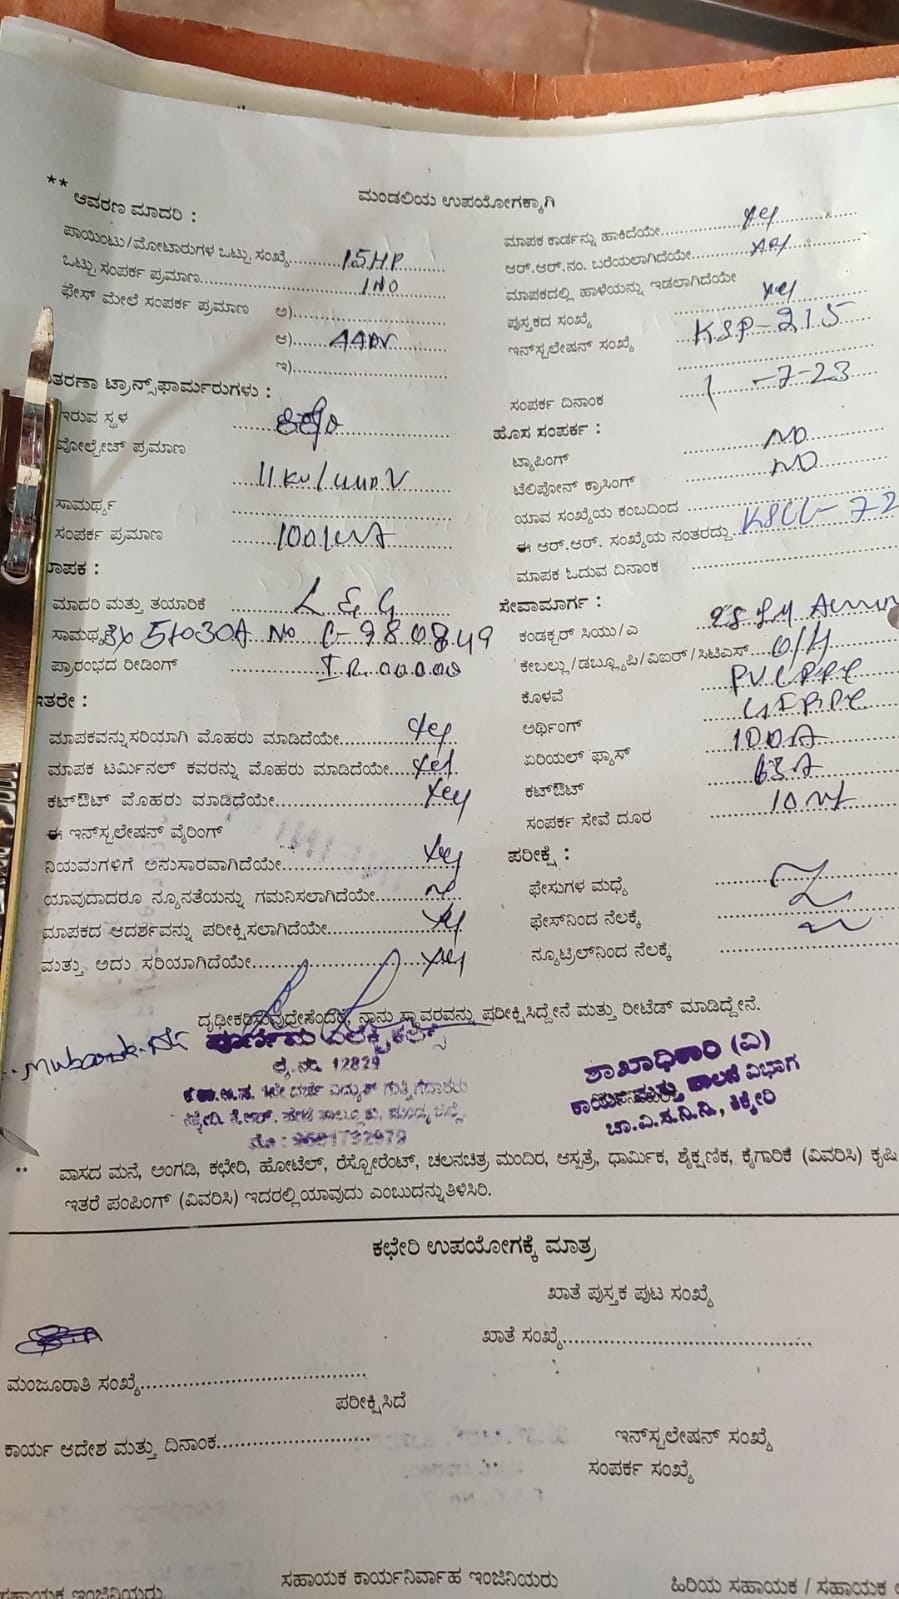 ** ಆವರಣ ಮಾದರಿ :
ಮಂಡಲಿಯ ಉಪಯೋಗಕ್ಕಾಗಿ
ಪಾಯಿಂಟು/ಮೋಟಾರುಗಳ ಒಟ್ಟು ಸಂಖ್ಯೆ 15HP
ಒಟ್ಟು ಸಂಪರ್ಕ ಪ್ರಮಾಣ 1NO
ಫೇಸ್ ಮೇಲೆ ಸಂಪರ್ಕ ಪ್ರಮಾಣ ಅ)
ಆ)
ಇ)
ತರಣಾ ಟ್ರಾನ್ಸ್‌ಫಾರ್ಮರುಗಳು :
ಇರುವ ಸ್ಥಳ
ವೋಲ್ಟೇಜ್ ಪ್ರಮಾಣ
11KV/
ಸಾಮರ್ಥ್ಯ
ಸಂಪರ್ಕ ಪ್ರಮಾಣ 100
ಮಾಪಕ :
ಮಾದರಿ ಮತ್ತು ತಯಾರಿಕೆ L & G
ಸಾಮರ್ಥ್ಯ No C-980849
ಪ್ರಾರಂಭದ ರೀಡಿಂಗ್ I.R.
ಇತರೇ :
ಮಾಪಕವನ್ನು ಸರಿಯಾಗಿ ಮೊಹರು ಮಾಡಿದೆಯೇ yes
ಮಾಪಕ ಟರ್ಮಿನಲ್ ಕವರನ್ನು ಮೊಹರು ಮಾಡಿದೆಯೇ yes
ಕಟ್‌ಔಟ್ ಮೊಹರು ಮಾಡಿದೆಯೇ yes
ಈ ಇನ್‌ಸ್ಟಲೇಷನ್ ವೈರಿಂಗ್
ನಿಯಮಗಳಿಗೆ ಅನುಸಾರವಾಗಿದೆಯೇ yes
ಯಾವುದಾದರೂ ನ್ಯೂನತೆಯನ್ನು ಗಮನಿಸಲಾಗಿದೆಯೇ no
ಮಾಪಕದ ಆದರ್ಶವನ್ನು ಪರೀಕ್ಷಿಸಲಾಗಿದೆಯೇ yes
ಮತ್ತು ಅದು ಸರಿಯಾಗಿದೆಯೇ yes
ಮಾಪಕ ಕಾರ್ಡನ್ನು ಹಾಕಿದೆಯೇ yes
ಆರ್.ಆರ್.ನಂ. ಬರೆಯಲಾಗಿದೆಯೇ yes
ಮಾಪಕದಲ್ಲಿ ಹಾಳೆಯನ್ನು ಇಡಲಾಗಿದೆಯೇ yes
ಪುಸ್ತಕದ ಸಂಖ್ಯೆ
ಇನ್‌ಸ್ಟಲೇಷನ್ ಸಂಖ್ಯೆ KSP-215
ಸಂಪರ್ಕ ದಿನಾಂಕ 1-7-23
ಹೊಸ ಸಂಪರ್ಕ :
ಟ್ಯಾಪಿಂಗ್ NO
ಟೆಲಿಪೋನ್ ಕ್ರಾಸಿಂಗ್ NO
ಯಾವ ಸಂಖ್ಯೆಯ ಕಂಬದಿಂದ
ಈ ಆರ್.ಆರ್. ಸಂಖ್ಯೆಯ ನಂತರದ್ದು
ಮಾಪಕ ಓದುವ ದಿನಾಂಕ
ಸೇವಾಮಾರ್ಗ :
ಕಂಡಕ್ಟರ್ ಸಿಯು/ಎ
ಕೇಬಲ್ಲು/ಡಬ್ಲ್ಯೂಪಿ/ವಿಐಆರ್/ಸಿಟಿಎಸ್ O/H
ಕೊಳವೆ PVC
ಅರ್ಥಿಂಗ್
ಏರಿಯಲ್ ಫ್ಯೂಸ್ 100A
ಕಟ್‌ಔಟ್ 63A
ಸಂಪರ್ಕ ಸೇವೆ ದೂರ 10 M
ಪರೀಕ್ಷೆ :
ಫೇಸುಗಳ ಮಧ್ಯೆ
ಫೇಸ್‌ನಿಂದ ನೆಲಕ್ಕೆ
ನ್ಯೂಟ್ರಿಲ್‌ನಿಂದ ನೆಲಕ್ಕೆ
ದೃಢೀಕರಿಸುವುದೇನೆಂದರೆ, ನಾನು ಸ್ಥಾವರವನ್ನು ಪರೀಕ್ಷಿಸಿದ್ದೇನೆ ಮತ್ತು ರೀಟೆಡ್ ಮಾಡಿದ್ದೇನೆ.
ಪೂರ್ಣಿಮ ಎಲೆಕ್ಟ್ರಿಕಲ್ಸ್
ಲೈ.ನಂ. 12829
ಶಾಖಾಧಿಕಾರಿ (ವಿ)
ಕಾರ್ಯ ಮತ್ತು ಪಾಲನೆ ವಿಭಾಗ
ಚಾ.ವಿ.ಸ.ನಿ.ನಿ., ಕಿಕ್ಕೇರಿ
** ವಾಸದ ಮನೆ, ಅಂಗಡಿ, ಕಛೇರಿ, ಹೋಟೆಲ್, ರೆಸ್ಟೋರೆಂಟ್, ಚಲನಚಿತ್ರ ಮಂದಿರ, ಆಸ್ಪತ್ರೆ, ಧಾರ್ಮಿಕ, ಶೈಕ್ಷಣಿಕ, ಕೈಗಾರಿಕೆ (ವಿವರಿಸಿ) ಕೃಷಿ
ಇತರೆ ಪಂಪಿಂಗ್ (ವಿವರಿಸಿ) ಇದರಲ್ಲಿ ಯಾವುದು ಎಂಬುದನ್ನು ತಿಳಿಸಿರಿ.
ಕಛೇರಿ ಉಪಯೋಗಕ್ಕೆ ಮಾತ್ರ
ಖಾತೆ ಪುಸ್ತಕ ಪುಟ ಸಂಖ್ಯೆ
ಖಾತೆ ಸಂಖ್ಯೆ
ಮಂಜೂರಾತಿ ಸಂಖ್ಯೆ
ಪರೀಕ್ಷಿಸಿದೆ
ಕಾರ್ಯ ಆದೇಶ ಮತ್ತು ದಿನಾಂಕ
ಇನ್‌ಸ್ಟಲೇಷನ್ ಸಂಖ್ಯೆ
ಸಂಪರ್ಕ ಸಂಖ್ಯೆ
ಸಹಾಯಕ ಇಂಜಿನಿಯರು
ಸಹಾಯಕ ಕಾರ್ಯನಿರ್ವಾಹ ಇಂಜಿನಿಯರು
ಹಿರಿಯ ಸಹಾಯಕ / ಸಹಾಯಕ